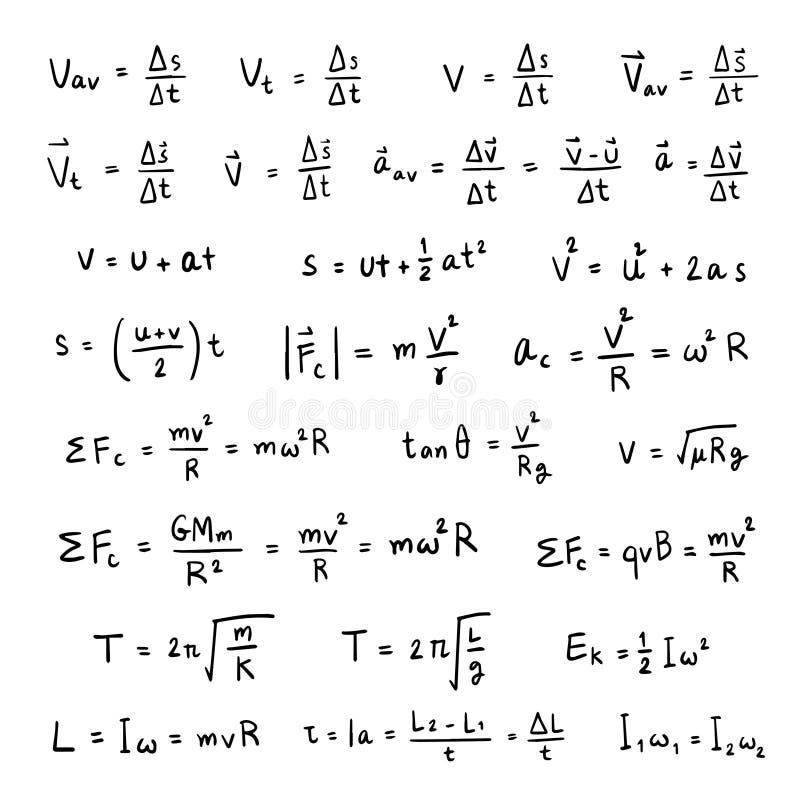 Vav = Δs/Δt   Vt = Δs/Δt   V = Δs/Δt   V⃗av = Δs⃗/Δt
V⃗t = Δs⃗/Δt   v⃗ = Δs⃗/Δt   a⃗av = Δv⃗/Δt = (v⃗ - u⃗)/Δt   a⃗ = Δv⃗/Δt
v = u + at   s = ut + 1/2 at²   v² = u² + 2as
s = ((u+v)/2) t   |F⃗c| = m v²/r   ac = v²/R = ω²R
ΣFc = mv²/R = mω²R   tanθ = v²/Rg   v = √(μRg)
dreamstime
ΣFc = GMm/R² = mv²/R = mω²R   ΣFc = qvB = mv²/R
T = 2π√(m/K)   T = 2π√(L/g)   EK = 1/2 Iω²
L = Iω = mvR   τ = Ia = (L2 - L1)/t = ΔL/t   I1ω1 = I2ω2